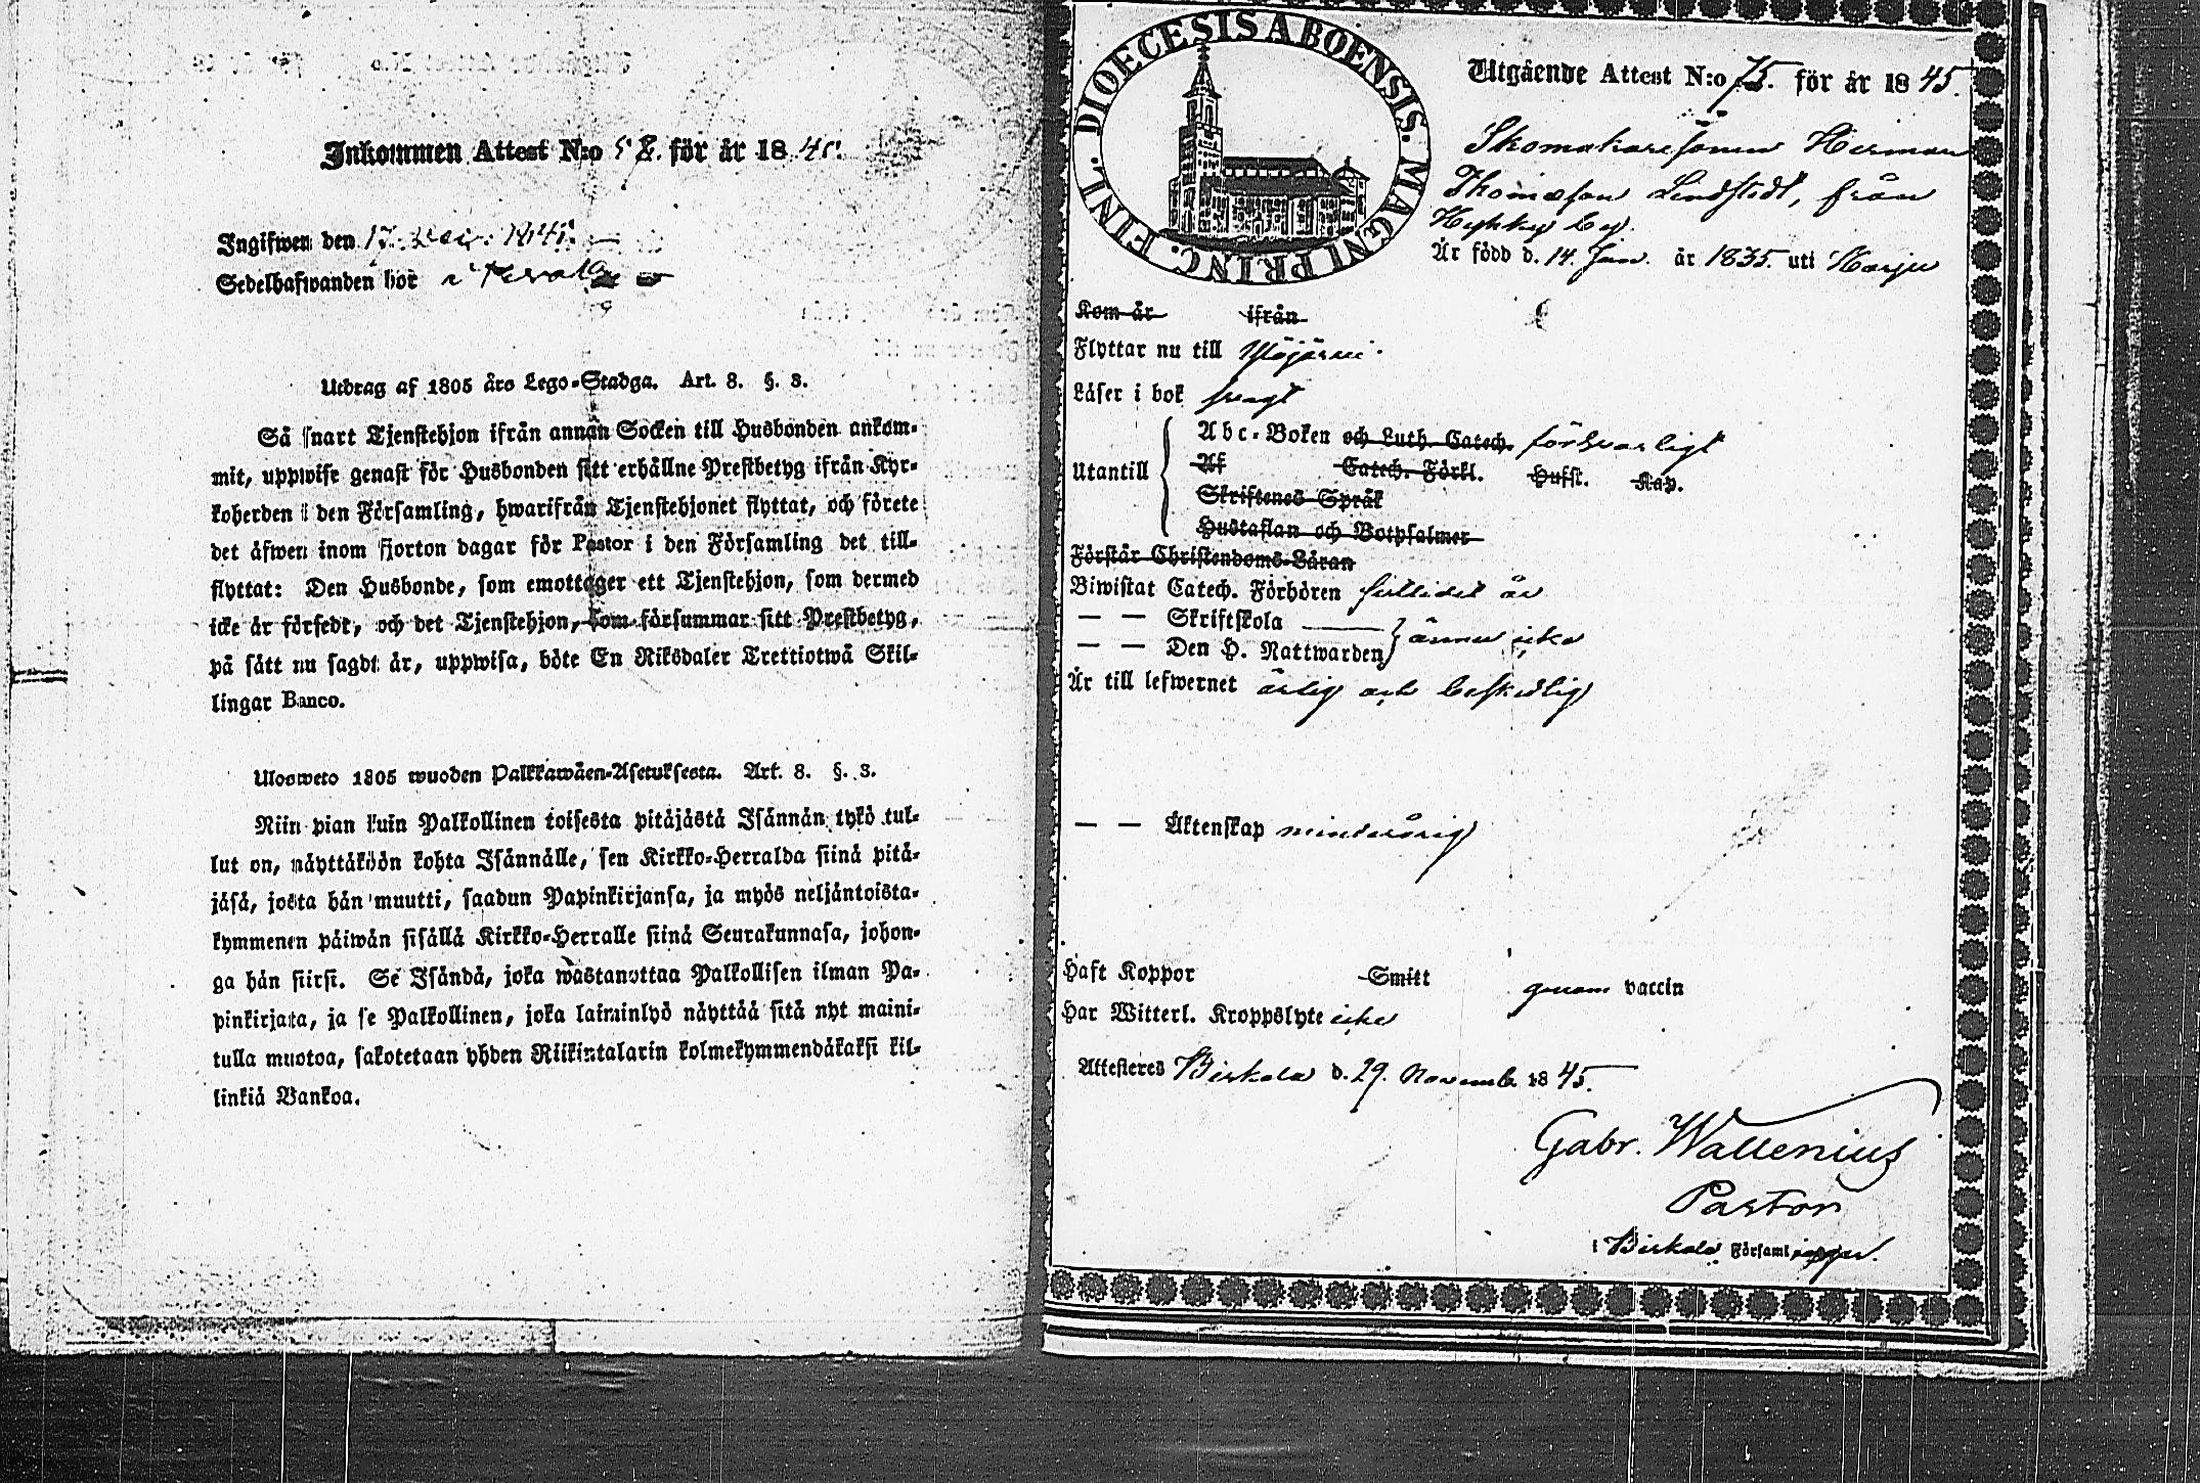 Inkommen Attest N:o 58. för år 1845.
Ingifwen den 17. 1845.
Sedelhafwanden bor i
Utdrag af 1805 års Lego-Stadga. Art. 8. §. 3.
Så snart Tjenstehjon ifrån annan Socken till Husbonden ankom-
mit, uppwise genast för Husbonden sitt erhållne Prestbetyg ifrån Kyr-
koherden i den Församling, hwarifrån Tjenstehjonet flyttat, och förete
det äfwen inom fjorton dagar för Pastor i den Församling det till-
flyttat: Den Husbonde, som emottager ett Tjenstehjon, som dermed
icke är försedt, och det Tjenstehjon, som försummar sitt Prestbetyg,
på sätt nu sagdt är, uppwisa, böte En Riksdaler Trettiotwå Skil-
lingar Banco.
Ulosweto 1805 wuoden Palkkawäen-Asetuksesta. Art. 8. §. 3.
Niin pian kuin Palkollinen toisesta pitäjästä Isännän tykö tul-
lut on, näyttäköön kohta Isännälle, sen Kirkko-Herralda siinä pitä-
jäsä, josta hän muutti, saadun Papinkirjansa, ja myös neljäntoista-
kymmenen päiwän sisällä Kirkko-Herralle siinä Seurakunnasa, johon-
ga hän siirsi. Se Isändä, joka wastanottaa Palkollisen ilman Pa-
pinkirjata, ja se Palkollinen, joka laiminlyö näyttää sitä nyt maini-
tulla muotoa, sakotetaan yhden Riikintalarin kolmekymmendäkaksi kil-
linkiä Bankoa.
DIOECESIS ABOENSIS. MAGNI PRINC. FINL.
Utgående Attest N:o 75. för år 1845.
Skomakaresonen Herman
Thomasson Lindstedt, från
Hyhky by.
Är född d. 14. Jan. år 1835. uti Harju
Kom år ifrån
Flyttar nu till Ylöjärvi.
Läser i bok svagt
Utantill
Abc-Boken och Luth. Catech. försvarligt
Af Catech. Förkl. Hufst. Kap.
Skriftenes Språk
Hustaflan och Botpsalmer
Förstår Christendoms-Läran
Biwistat Catech. Förhören sistlidet år
— — Skriftskola
— — Den H. Nattwarden ännu icke
Är till lefwernet ärlig och beskedlig
— — Äktenskap minderårig
Haft Koppor Smitt genom vaccin
Har Witterl. Kroppslyte icke
Attesteres Birkala d. 29. Novemb. 1845.
Gabr. Wallenius
Pastor
i Birkala Församlingar.